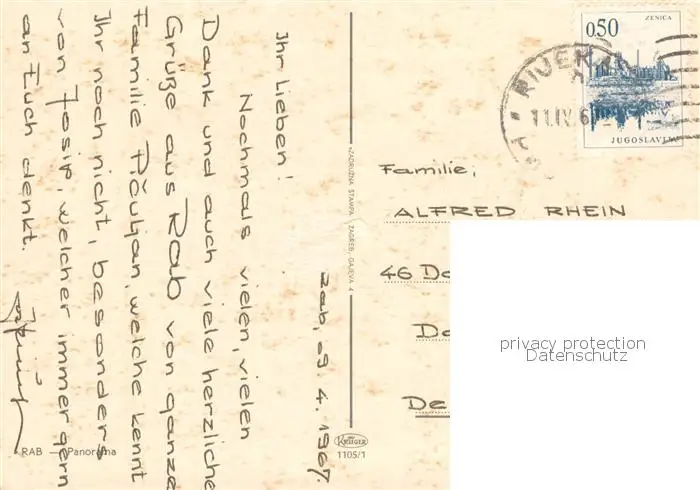 Rab, 09.4.1967.
Ihr Lieben!
Nochmals vielen, vielen
Dank und auch viele herzliche
Grüße aus Rab von ganze
Familie Pičuljan, welche kennt
Ihr noch nicht, besonders
von Josip, welcher immer gern
an Euch denkt.
RAB — Panorama
"ZADRUŽNA ŠTAMPA" ZAGREB, GAJEVA 4
KRÜGER
1105/1
0,50
ZENICA
JUGOSLAVIJA
RIJEKA
11.IV.6
Familie,
ALFRED RHEIN
46 Do
Do
De
privacy protection
Datenschutz